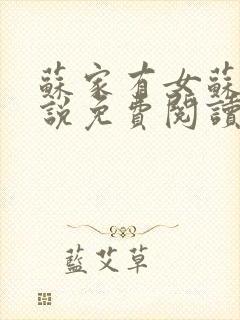 蘇家有女蘇
說免費閱讀
藍艾草